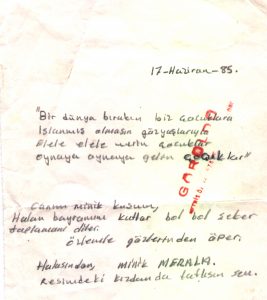 17-Haziran-85.
"Bir dünya bırakın biz çocuklara
Islanmış olmasın gözyaşlarıyla
Elele elele verin çocuklar
oynaya oynaya gelin çocuklar"
Canım minik kuzum,
Halan bayramını kutlar bol bol şeker
toplamanı diler.
özlemle gözlerinden öper.
Halasından, minik MERALA.
Resimdeki kızdanda tatlısın sen.